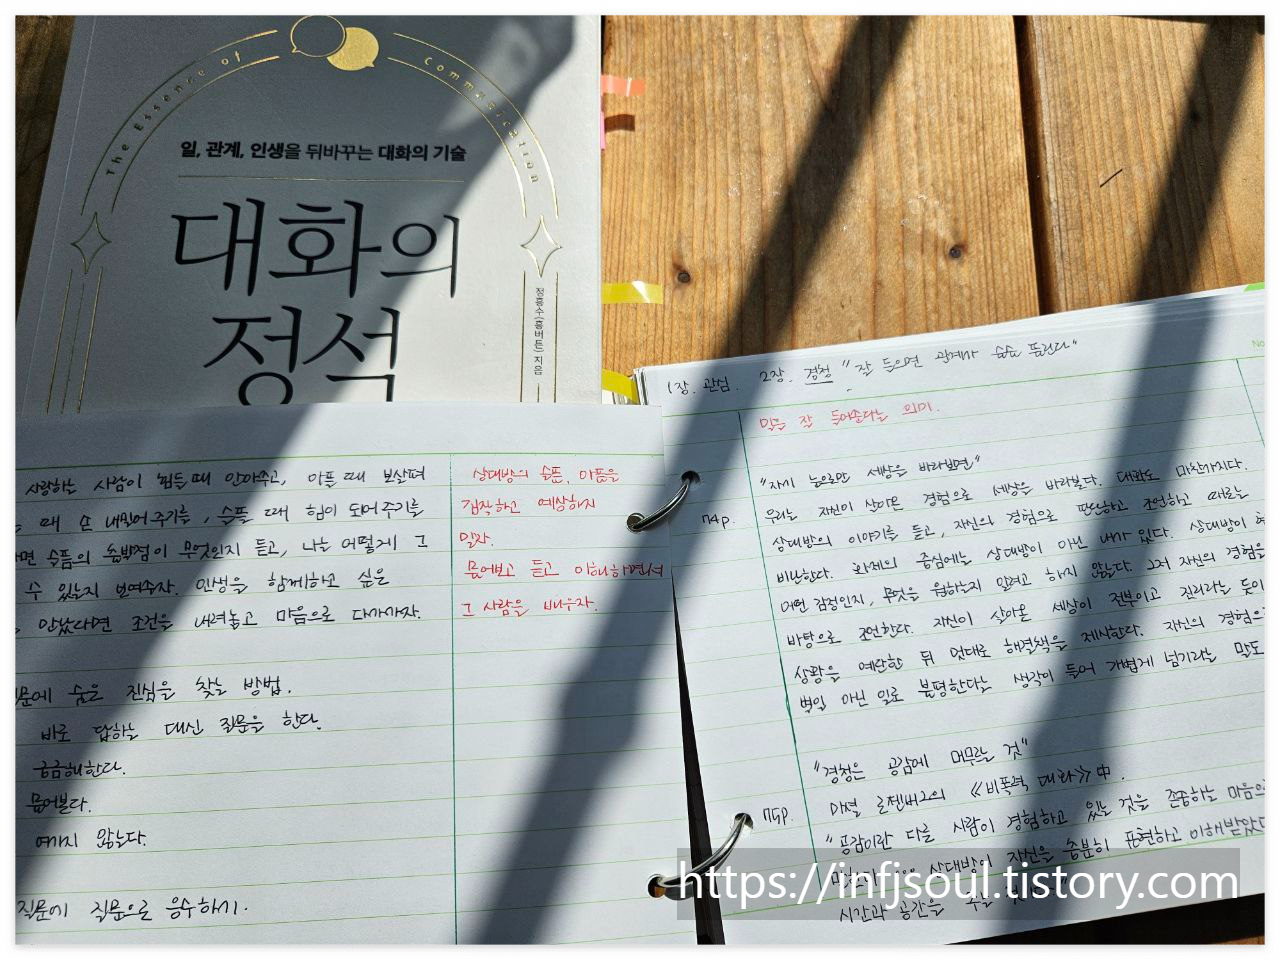 The Essence of Communication
일, 관계, 인생을 뒤바꾸는 대화의 기술
대화의
정석
정흥수(흥버튼) 지음
사랑하는 사람이 힘들 때 안아주고, 아플 때 보살펴
때 손 내밀어 주기를, 슬플 때 힘이 되어 주기를
슬픔의 출발점이 무엇인지 듣고, 나는 어떻게 그
수 있는지 보여주자. 인생을 함께하고 싶은
만났다면 조건을 내려놓고 마음으로 다가가자.
숨은 진심을 찾는 방법.
바로 답하는 대신 질문을 한다.
궁금해한다.
물어본다.
않는다.
질문에 질문으로 응수하기.
상대방의 슬픔, 아픔을
겁작하고 예상하지
말자.
물어보고 듣고 이해하면서
그 사람을 배우자.
1장. 관점. 2장. 경청 "잘 들으면 관계가 술술 풀린다"
말을 잘 들어준다는 의미.
"자기 눈으로만 세상을 바라보면"
74p.
우리는 자신이 살아온 경험으로 세상을 바라본다. 대화도 마찬가지다.
상대방의 이야기를 듣고, 자신의 경험으로 판단하고 조언하고 때로는
비난한다. 화제의 중심에는 상대방이 아닌 내가 있다. 상대방이
어떤 감정인지, 무엇을 원하는지 알려고 하지 않는다. 그저 자신의 경험을
바탕으로 조언한다. 자신이 살아온 세상이 전부이고 진리라는 듯이
상황을 예단한 뒤 멋대로 해결책을 제시한다. 자신의 경험으
별일 아닌 일로 불평한다는 생각이 들어 가볍게 넘기라는 말도
"경청은 공감에 머무는 것"
75p.
마셜 로젠버그의 《비폭력 대화》中.
"공감이란 다른 사람이 경험하고 있는 것을 존중하는 마음으
상대방이 자신을 충분히 표현하고 이해받았다
시간과 공간을 주는
https://infjsoul.tistory.com